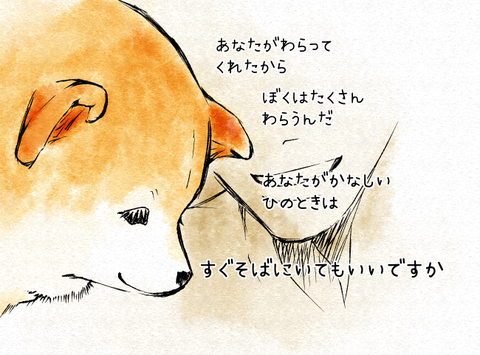 あなたがわらって
くれたから
ぼくはたくさん
わらうんだ
あなたがかなしい
ひのときは
すぐそばにいてもいいですか